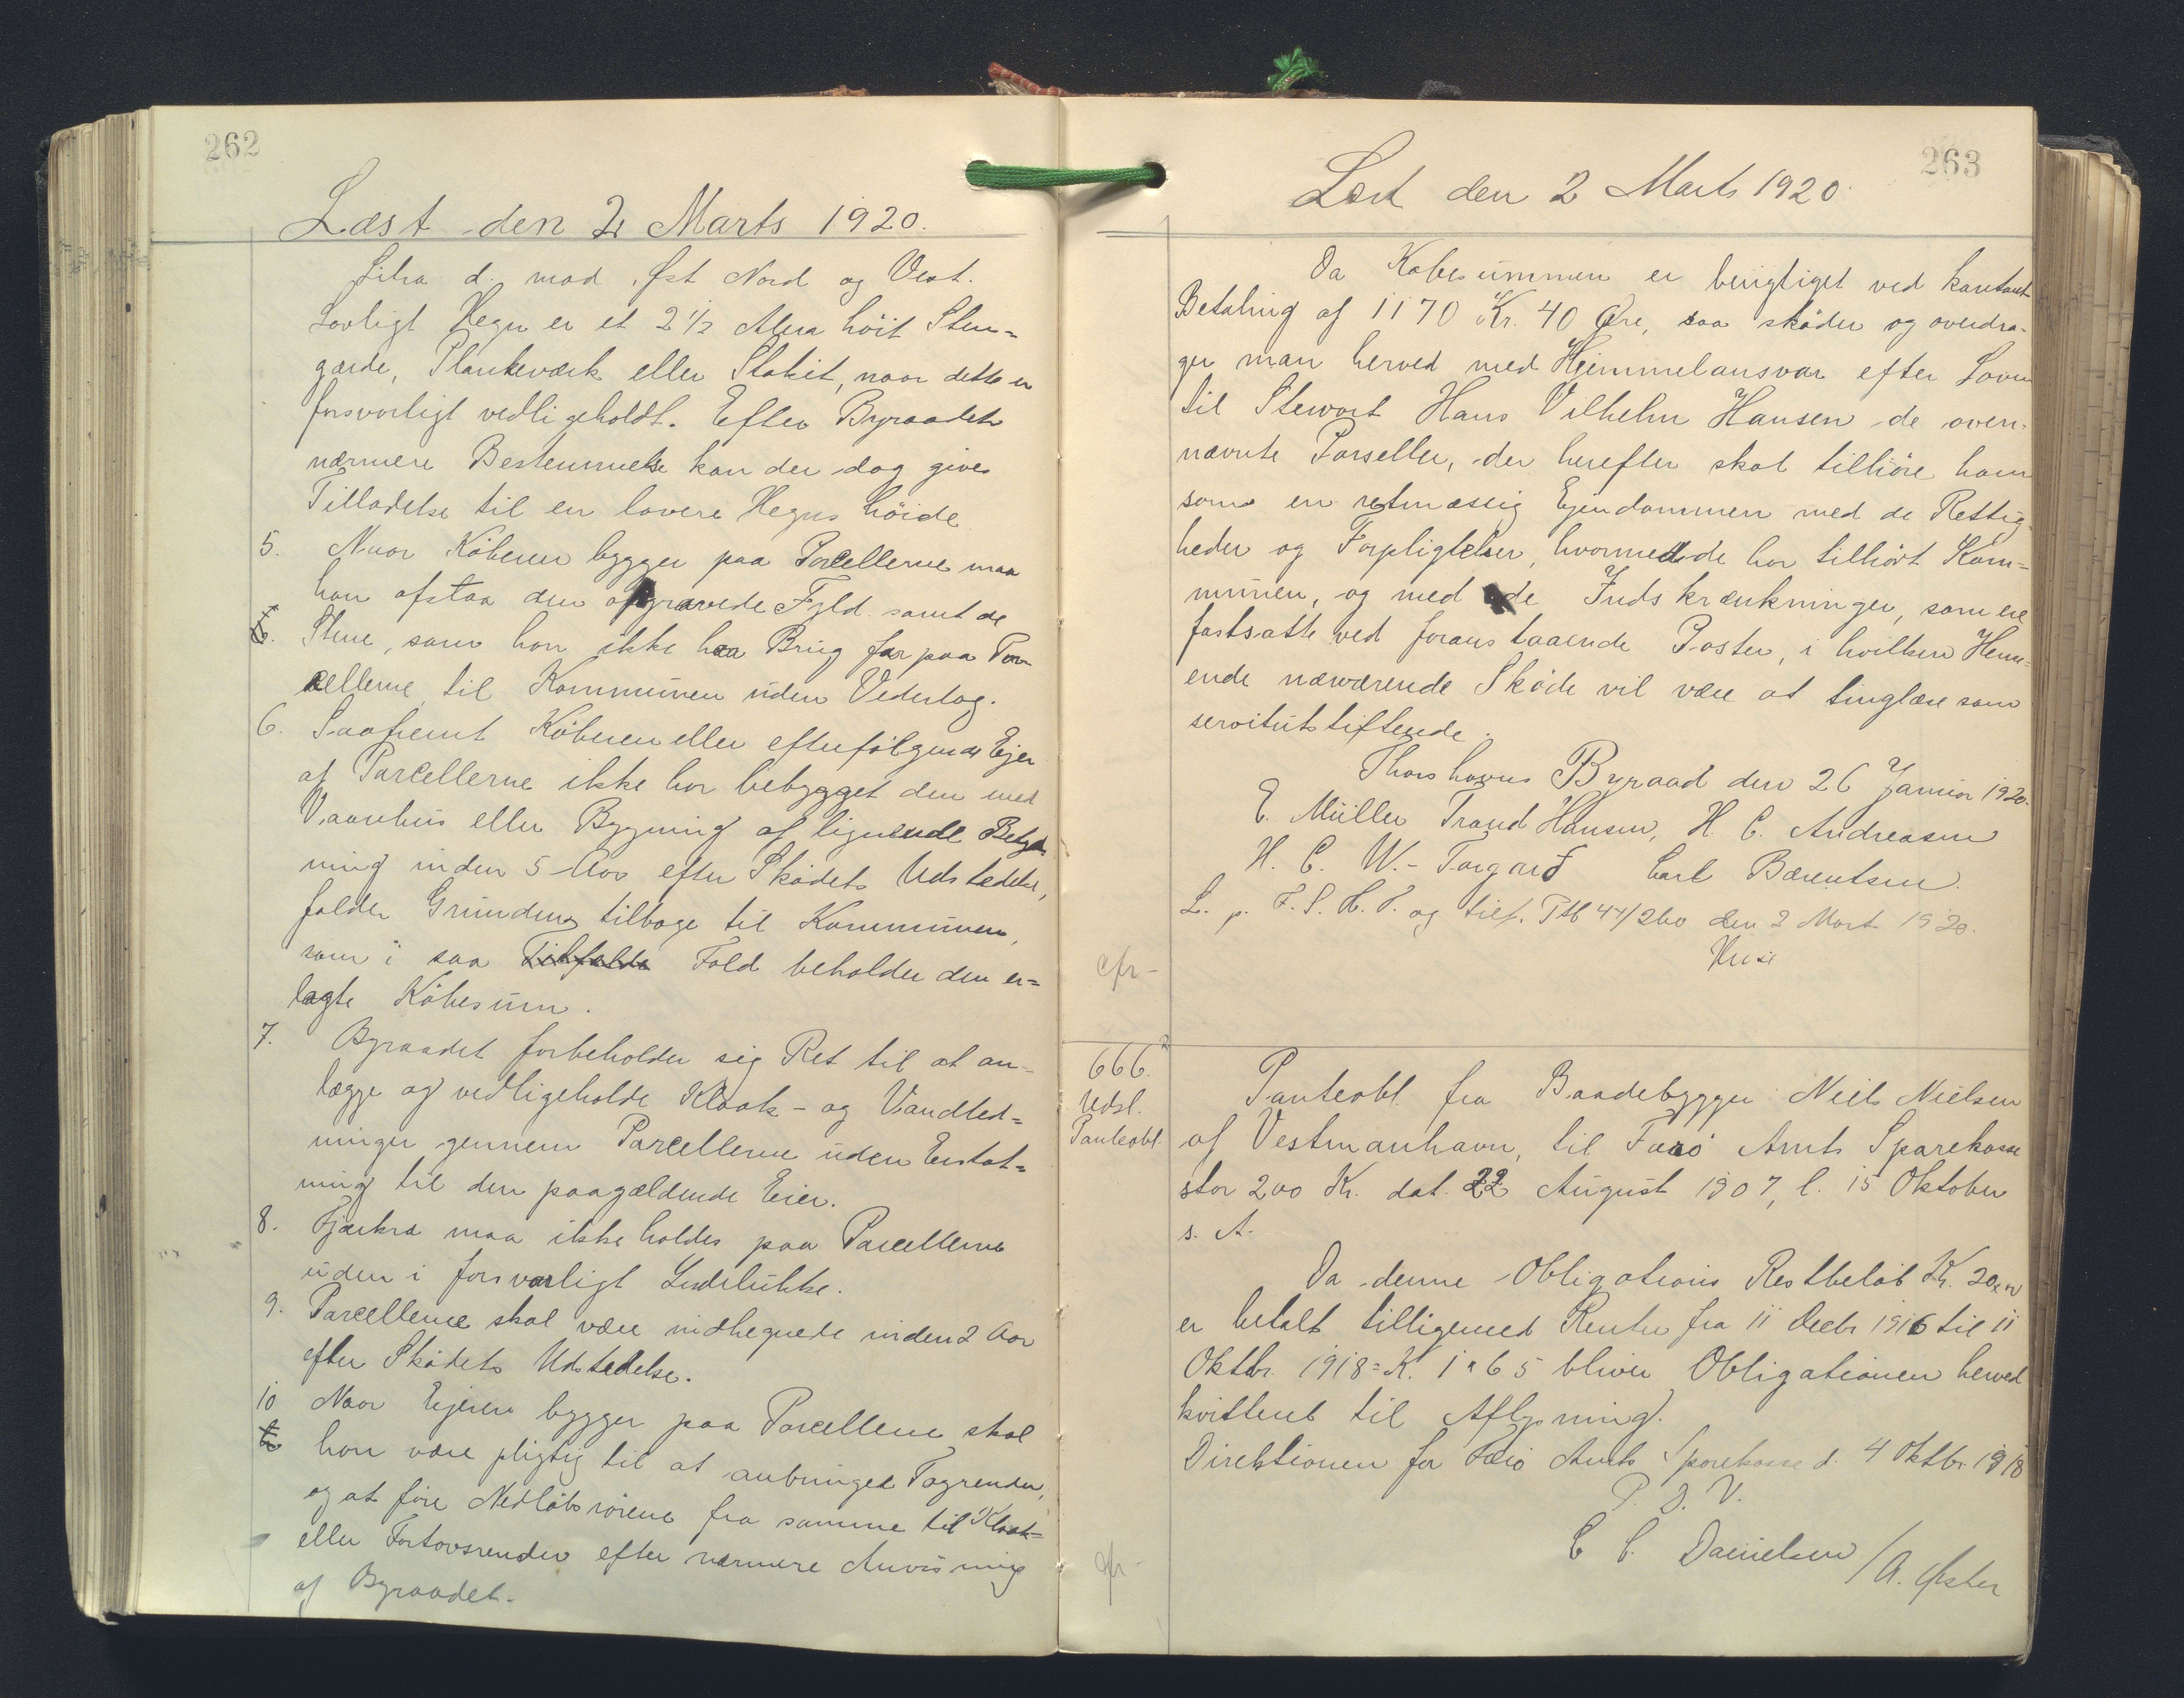 262
Læst den 2 Marts 1920.
Litra d. mod Øst Nord og Vest.
Lovligt Hegn er et 2 1/2 Alen höit Sten=
gærde, Plankeværk eller Stakit, naar dette er
forsvarligt vedligeholdt. Efter Byraadets
nærmere Bestemmelse kan der dog gives
Tilladelse til en lavere Hegns höide
5. Naar Köberen bygger paa Parcellerne maa
han afstaa den opgravede Fyld samt de
6. Stene, som han ikke har Brug for paa Par-
cellerne til Kommunen uden Vederlag.
6. Saafremt Köberen eller efterfölgende Ejer
af Parcellerne ikke har bebygget den med
Vaanhus eller Bygning af lignende Betyd-
ning inden 5 Aar efter Sködets Udstedelse,
falder Grunden tilbage til Kommunen,
som i saa Tilfælde Fald beholder den er=
lagte Köbesum.
7. Byraadet forbeholder sig Ret til at an-
lægge og vedligeholde Kloak- og Vandled=
ninger gennem Parcellerne uden Erstat=
ning til den paagældende Eier.
8. Fjærkra maa ikke holdes paa Parcellerne
uden i forsvarligt Indelukke.
9. Parcellerne skal være indhegnede inden 2 Aar
efter Sködets Udstedelse.
10 Naar Ejeren bygger paa Parcellerne skal
han være pligtig til at anbringe Tagrender,
og at före Nedlöbsrörene fra samme til Kloak=
eller Fortovsrender efter nærmere Anvisning
af Byraadet.
263
Læst den 2 Marts 1920.
Da Köbesummen er berigtiget ved kontant
Betaling af 1170 Kr. 40 Øre, saa sköder og overdra-
ger man herved med Hjemmelansvar efter Loven
til Stewart Hans Vilhelm Hansen de oven-
nævnte Parseller, der herefter skal tilhöre ham
som en retmæssig Ejendommen med de Rettig-
heder og Forpligtelser, hvormed de har tilhört Kom=
munen, og med de Indskrænkninger, som ere
fastsatte ved foranstaaende Poster, i hvilken Hens=
ende nærværende Sköde vil være at tinglæse som
servitutstiftende.
Thorshavns Byraad den 26 Januar 1920.
E. Müller Trond Hansen, H. C. Andreasen
H. C. W. Torgard Carl Bærentsen.
L. p. F. S. H. T. og tilf. Ptb 44/260 den 2 Mart 1920.
cfr-
666.
Udsl.
Panteobl.
Panteobl. fra Baadebygger Niels Nielsen
af Vestmanhavn, til Færö Amts Sparekasse
stor 200 Kr. dat. 22 August 1907, l. 15 Oktober
s. A.
Da denne Obligations Restbelöb Kr. 20,,00
er betalt tilligemed Renter fra 11 Decbr 1916 til 11
Oktbr. 1918 = K. 1 " 65 bliver Obligationen herved
kvitteret til Aflysning.
Direktionen for Færö Amts Sparekasse d. 4 Oktbr. 1918
P. D. V.
C C. Danielsen /A. Øster
cfr-